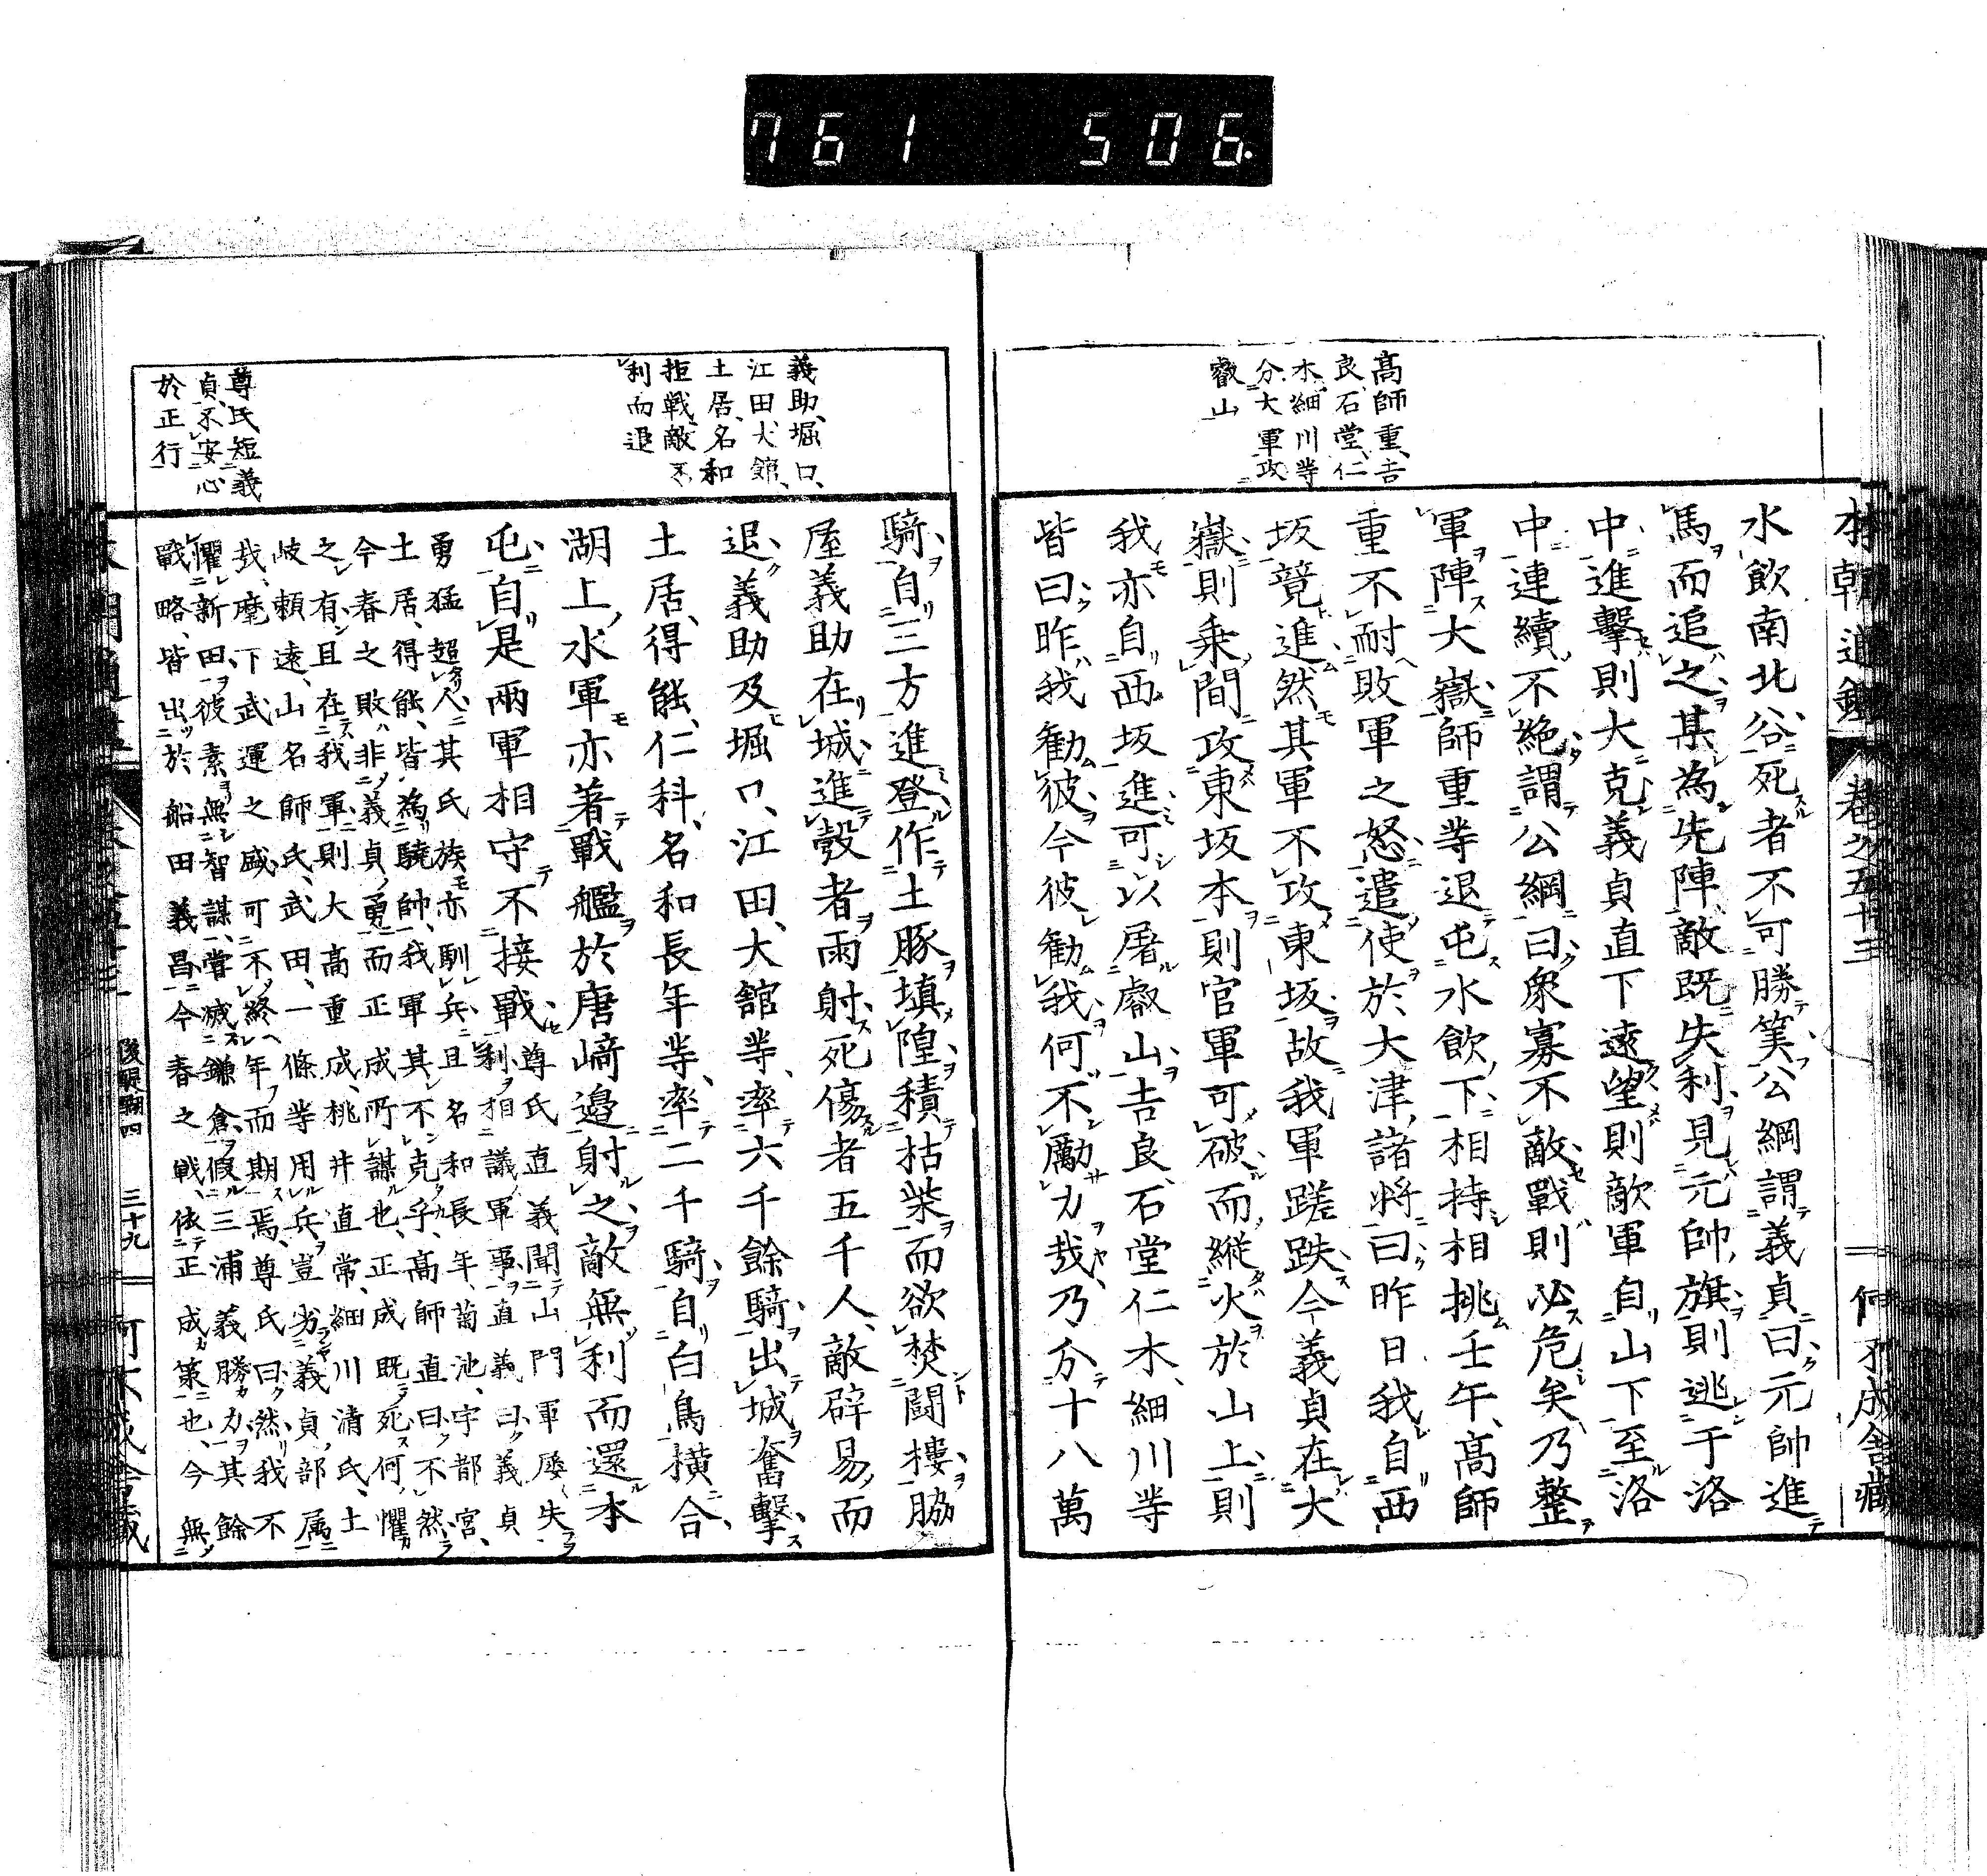 761 506.
本朝通鑑 卷之五十三 何不成舍藏
高師重、吉
良、石堂、仁
木、細川等
分大軍攻
叡山
水飲南北谷死者不可勝筭公綱謂義貞曰元帥進
馬而追之某為先陣敵既失利見元帥旗則逃于洛
中進擊則大克義貞直下遠望則敵軍自山下至洛
中連續不絶謂公綱曰衆寡不敵戰則必危矣乃整
軍陣大嶽師重等退屯水飲下相持相挑壬午高師
重不耐敗軍之怒遣使於大津諸將曰昨日我自西
坂競進然其軍不攻東坂故我軍蹉跌今義貞在大
嶽則乗間攻東坂本則官軍可破而縱火於山上則
我亦自西坂進可以屠叡山吉良石堂仁木細川等
皆曰昨我勸彼今彼勸我何不勵力哉乃分十八萬
義助、堀口、
江田、大館、
土居、名和
拒戰敵不
利而退
尊氏短義
貞不安心
於正行
騎自三方進登作土豚填隍積枯柴而欲焚闘樓脇
屋義助在城進彀者雨射死傷者五千人敵辟易而
退義助及堀口江田大舘等率六千餘騎出城奮擊
土居得能仁科名和長年等率二千騎自白鳥横合
湖上水軍亦著戰艦於唐﨑邉射之敵無利而還本
屯自是兩軍相守不接戰
尊氏直義聞山門軍屢失
利相議軍事直義曰義貞
勇猛超人其氏族亦馴兵且名和長年菊池宇都宮
土居得能皆為驍帥我軍其不克乎高師直曰不然
今春之敗非義貞勇而正成所謀也正成既死何懼
之有且在我軍則大高重成桃井直常細川清氏土
岐頼遠山名師氏武田一條等用兵豈劣義貞部属
哉麾下武運之盛可不終年而期焉尊氏曰然我不
懼新田彼素無智謀甞滅鎌倉假三浦義勝力其餘
戰略皆出於船田義昌今春之戰依正成策也今無
後醍醐四 三十九